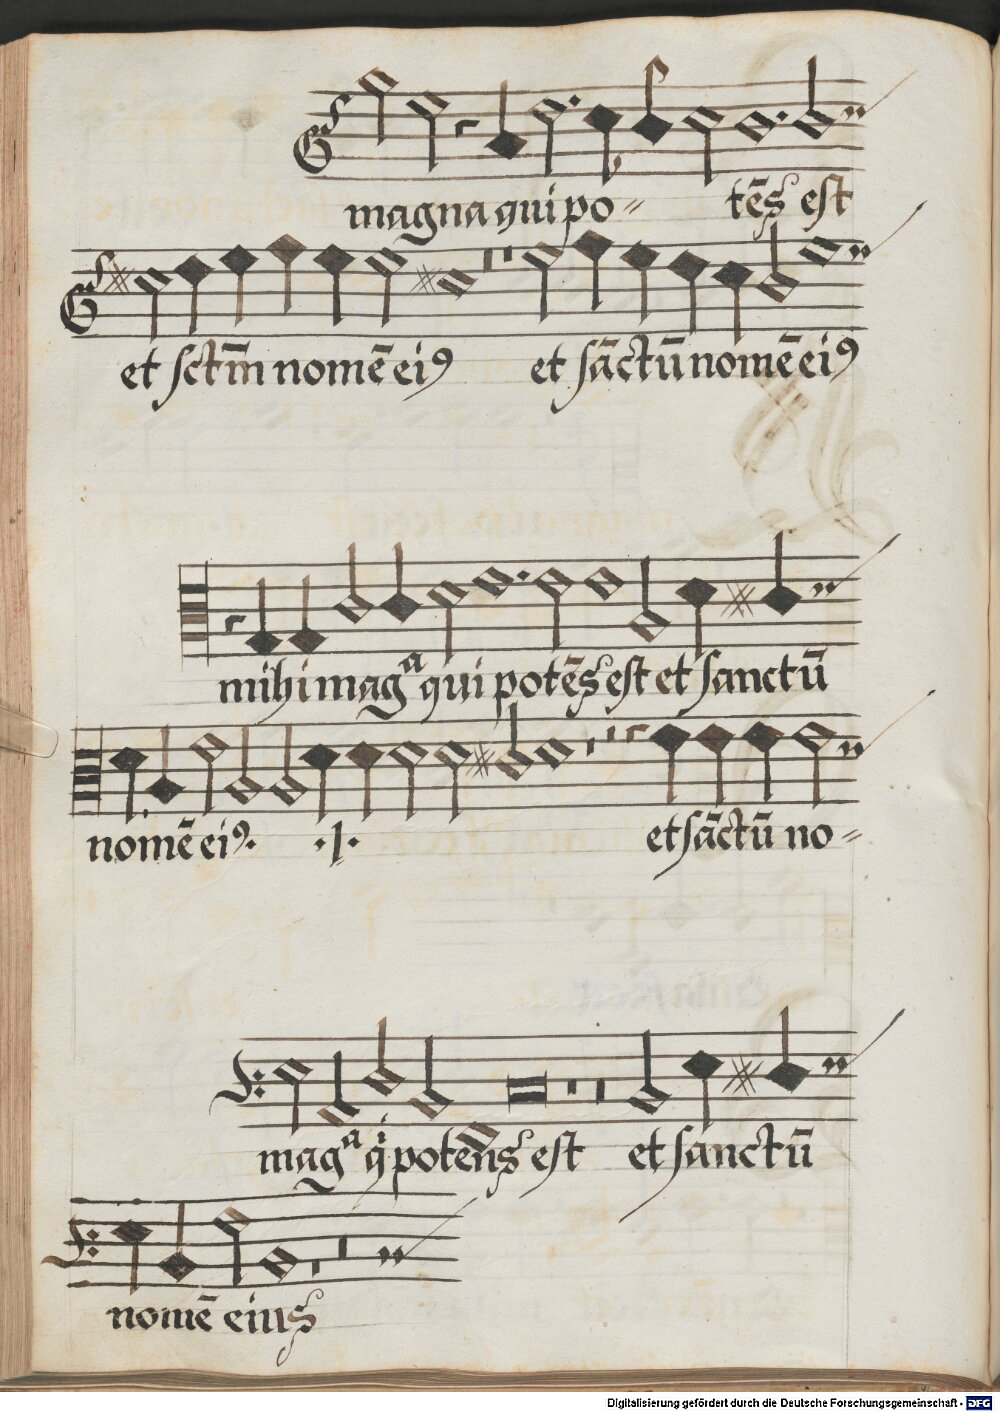 magna qui po⸗ tēs est
et sctm̄ nomē eiꝰ et sāctū nomē eiꝰ
mihi magᵃ qui potēs est et sanctū
nomē eiꝰ. ·I· et sāctū no⸗
magᵃ qⁱ potens est et sanctū
nomē eius
Digitalisierung gefördert durch die Deutsche Forschungsgemeinschaft - DFG